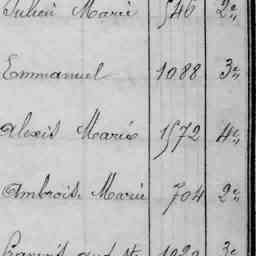 Julien Marie 546 2e
Emmanuel 1088 3e
Alexis Marie 1572 4e
Ambrois. Marie 704 2e
François 1029 3e